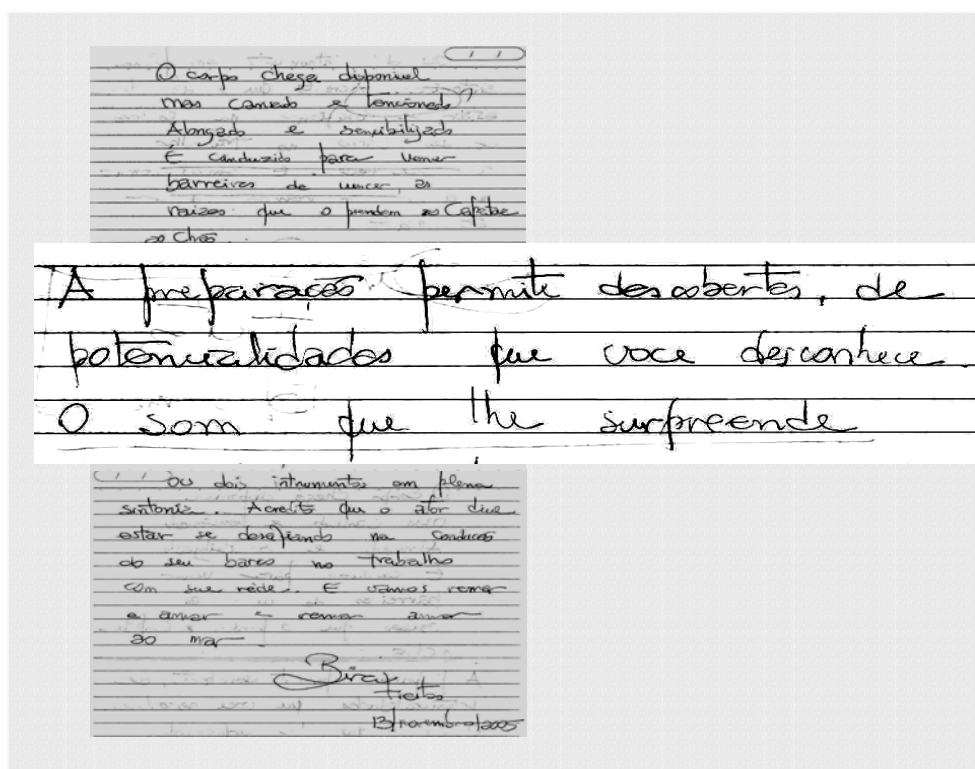 O corpo chega disponivel
mas cansado e tencionado
Alongado e sensibilizado
É conduzido para vencer
barreiras de vencer, as
raizes que o prendem ao Cafetae
ao Chão.
A preparação permite descobertas, de
potencialidades que voce desconhece.
O som que lhe surpreende
ou dois intrumentos em plena
sintonia. Acredito que o ator deve
estar se desafiando na condução
do seu barco no trabalho
com sua rede. E vamos remar
e amar e remar amar
ao mar
Bira
Freitas
13/novembro/2005